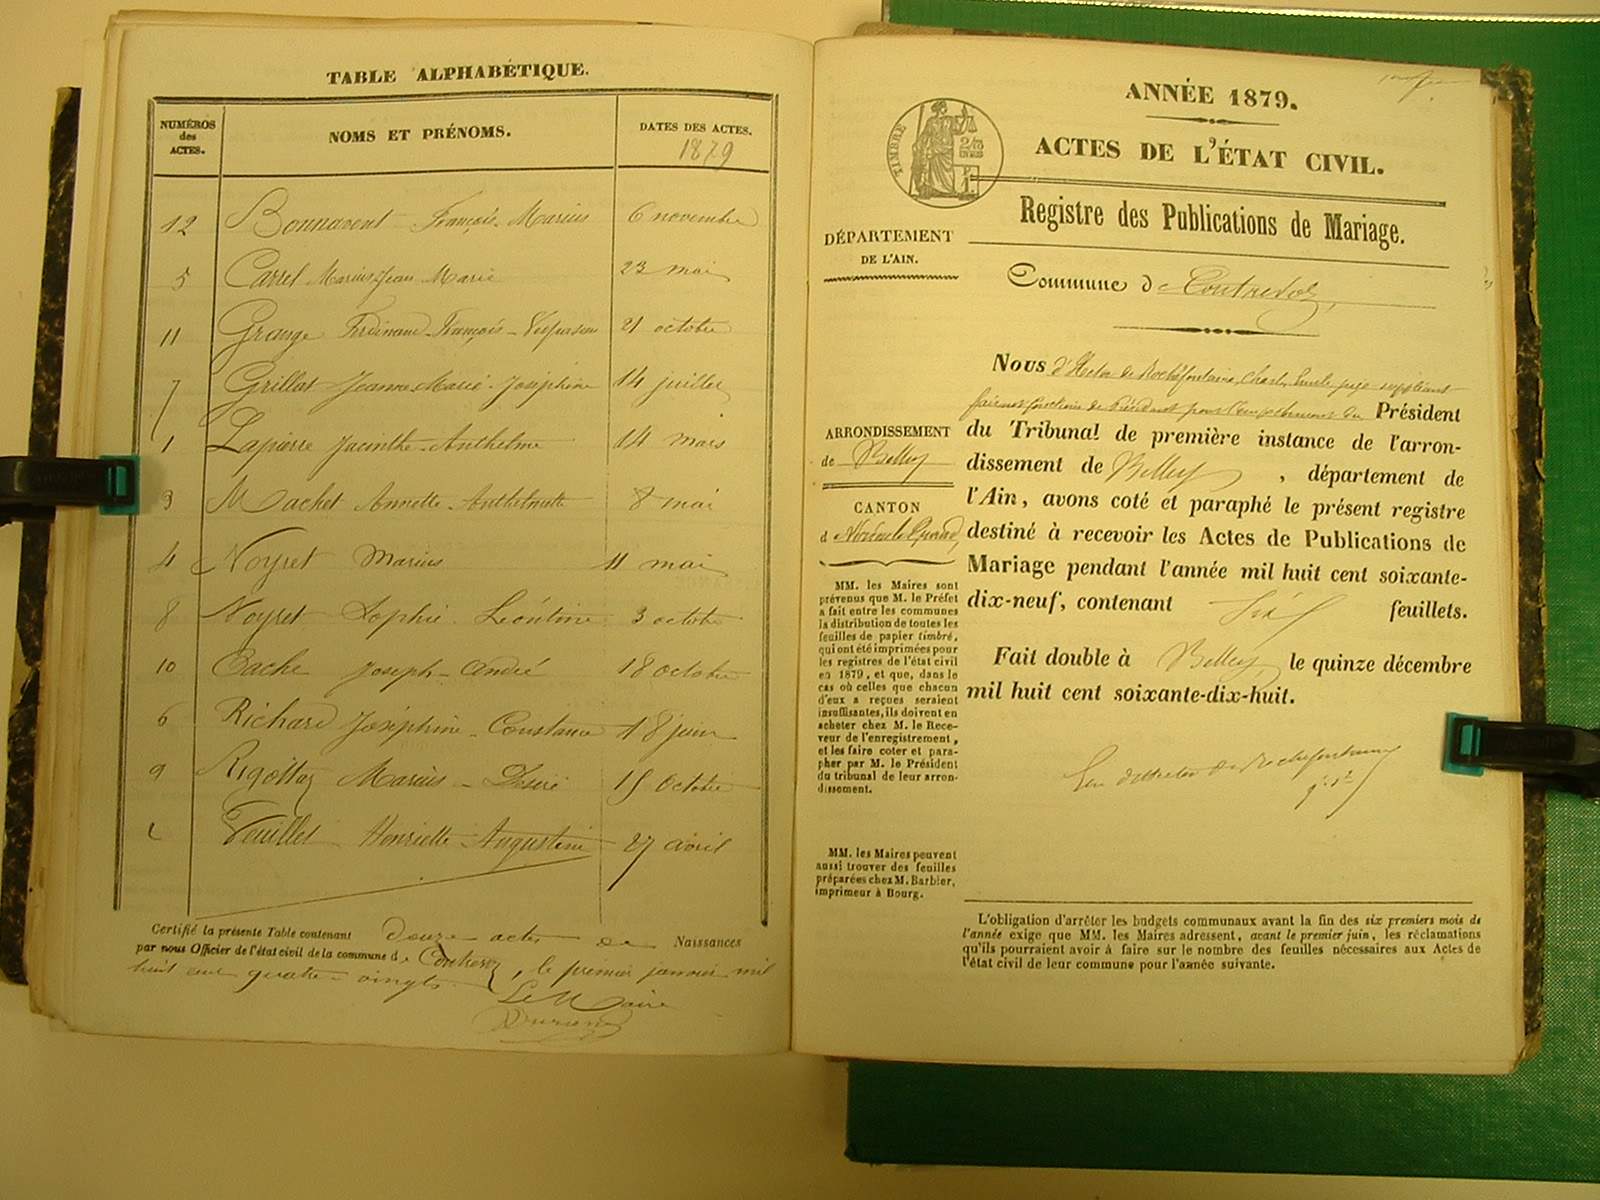 TABLE ALPHABÉTIQUE.
NUMÉROS
des
ACTES.
NOMS ET PRÉNOMS.
DATES DES ACTES.
1879
12 Bonnavent François-Marius 6 novembre
5 Carrel Marius Jean Marie 23 mai
11 Grange Ferdinand-François-Vespasien 21 octobre
7 Grillat Jeanne Marie Joséphine 14 juillet
1 Lapierre Jacinthe-Anthelme 14 mars
3 Machet Annette-Anthelmette 8 mai
4 Noyret Marius 11 mai
8 Noyret Sophie Léontine 3 octobre
10 Pache Joseph-André 18 octobre
6 Richard Joséphine-Constance 18 juin
9 Rigottaz Marius-Désiré 15 octobre
2 Veuillet Henriette-Augustine 27 avril
Certifié la présente Table contenant douze actes de Naissances
par nous Officier de l'état civil de la commune de Contrevoz, le premier janvier mil
huit cent quatre-vingts
Le Maire
ANNÉE 1879.
ACTES DE L'ÉTAT CIVIL.
TIMBRE
Registre des Publications de Mariage.
DÉPARTEMENT
DE L'AIN.
Commune de Contrevoz
ARRONDISSEMENT
de Belley
CANTON
d
MM. les Maires sont
prévenus que M. le Préfet
a fait entre les communes
la distribution de toutes les
feuilles de papier timbré,
qui ont été imprimées pour
les registres de l'état civil
en 1879, et que, dans le
cas où celles que chacun
d'eux a reçues seraient
insuffisantes, ils doivent en
acheter chez M. le Rece-
veur de l'enregistrement,
et les faire coter et para-
pher par M. le Président
du tribunal de leur arron-
dissement.
MM. les Maires peuvent
aussi trouver des feuilles
préparées chez M. Barbier,
imprimeur à Bourg.
Nous d'Hector de Rochefontaine, Charles Emile, juge suppléant
faisant fonctions de Président pour l'empêchement du Président
du Tribunal de première instance de l'arron-
dissement de Belley, département de
l'Ain, avons coté et paraphé le présent registre
destiné à recevoir les Actes de Publications de
Mariage pendant l'année mil huit cent soixante-
dix-neuf, contenant Six feuillets.
Fait double à Belley, le quinze décembre
mil huit cent soixante-dix-huit.
d'Hector de Rochefontaine
L'obligation d'arrêter les budgets communaux avant la fin des six premiers mois de
l'année exige que MM. les Maires adressent, avant le premier juin, les réclamations
qu'ils pourraient avoir à faire sur le nombre des feuilles nécessaires aux Actes de
l'état civil de leur commune pour l'année suivante.